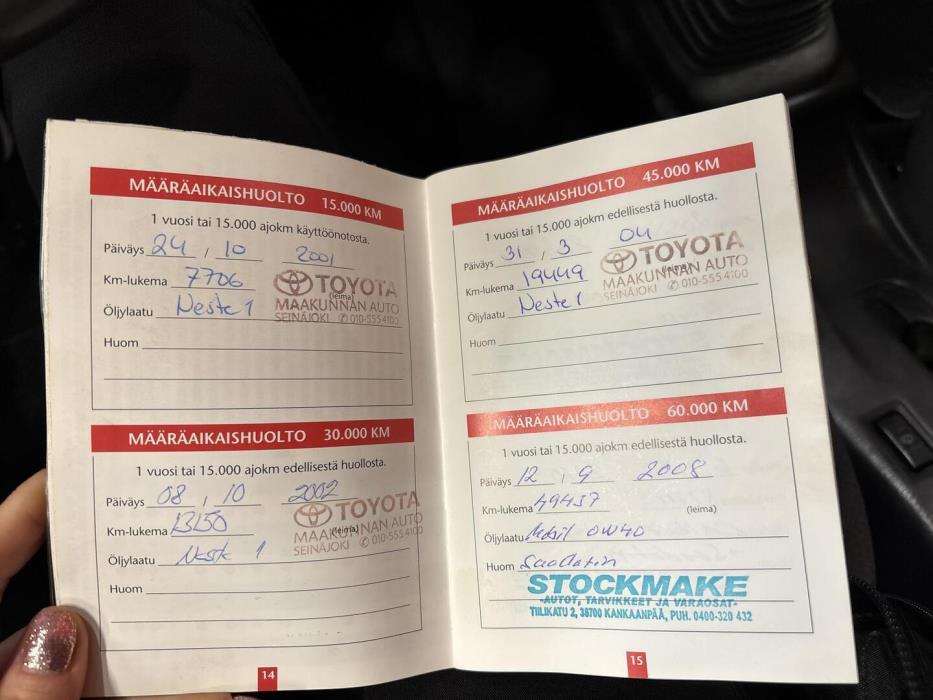 MÄÄRÄAIKAISHUOLTO 15.000 KM
1 vuosi tai 15.000 ajokm käyttöönotosta.
Päiväys 24 / 10 2001
Km-lukema 7706
(leima)
TOYOTA
MAAKUNNAN AUTO
SEINÄJOKI ✆ 010-555 4100
Öljylaatu Neste 1
Huom
MÄÄRÄAIKAISHUOLTO 30.000 KM
1 vuosi tai 15.000 ajokm edellisestä huollosta.
Päiväys 08 / 10 2002
Km-lukema 13150
(leima)
TOYOTA
MAAKUNNAN AUTO
SEINÄJOKI ✆ 010-555 4100
Öljylaatu Neste 1
Huom
14
MÄÄRÄAIKAISHUOLTO 45.000 KM
1 vuosi tai 15.000 ajokm edellisestä huollosta.
Päiväys 31 / 3 04
Km-lukema 19449
(leima)
TOYOTA
MAAKUNNAN AUTO
SEINÄJOKI ✆ 010-555 4100
Öljylaatu Neste 1
Huom
MÄÄRÄAIKAISHUOLTO 60.000 KM
1 vuosi tai 15.000 ajokm edellisestä huollosta.
Päiväys 12 / 9 2008
Km-lukema 49437
(leima)
Öljylaatu Mobil 0W40
Huom
STOCKMAKE
-AUTOT, TARVIKKEET JA VARAOSAT-
TIILIKATU 2, 38700 KANKAANPÄÄ, PUH. 0400-320 432
15